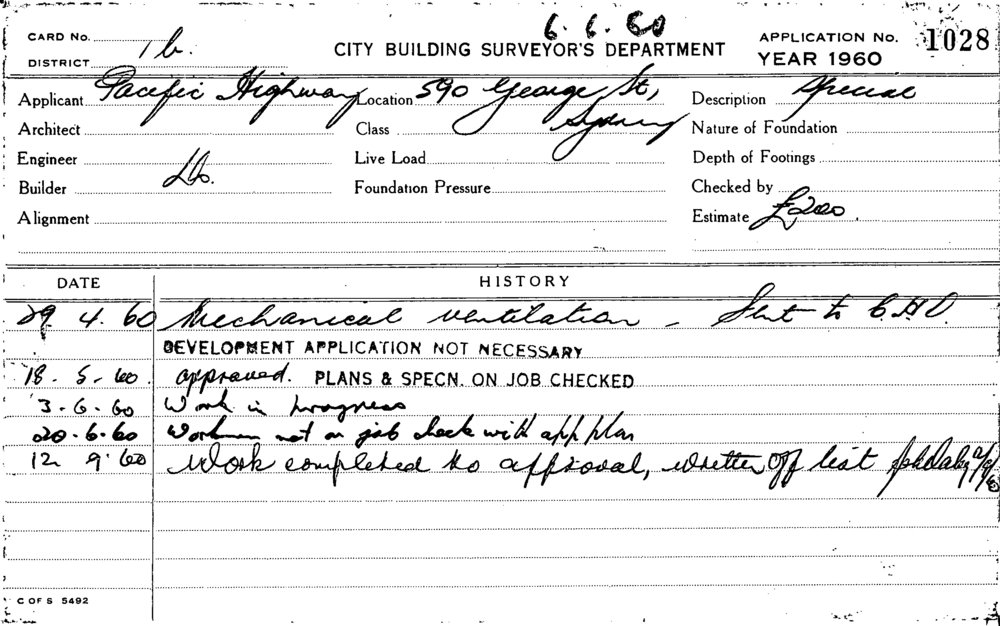 6.6.60
CARD No.
CITY BUILDING SURVEYOR'S DEPARTMENT
APPLICATION No. 1028
DISTRICT 1b.
YEAR 1960
Applicant Pacific Highway Location 590 George St, Sydney Description Special
Architect Class Nature of Foundation
Engineer Live Load Depth of Footings
Builder Do. Foundation Pressure Checked by
Alignment Estimate £200.
DATE HISTORY
29 4. 60 Mechanical ventilation - Sent to C.H.O.
DEVELOPMENT APPLICATION NOT NECESSARY
18. 5. 60. approved. PLANS & SPECN. ON JOB CHECKED
3.6.60 Work in progress
20.6.60 Workmen not on job check with app plan
12 9 60 Work completed to approval, written off list
C OF S 5492